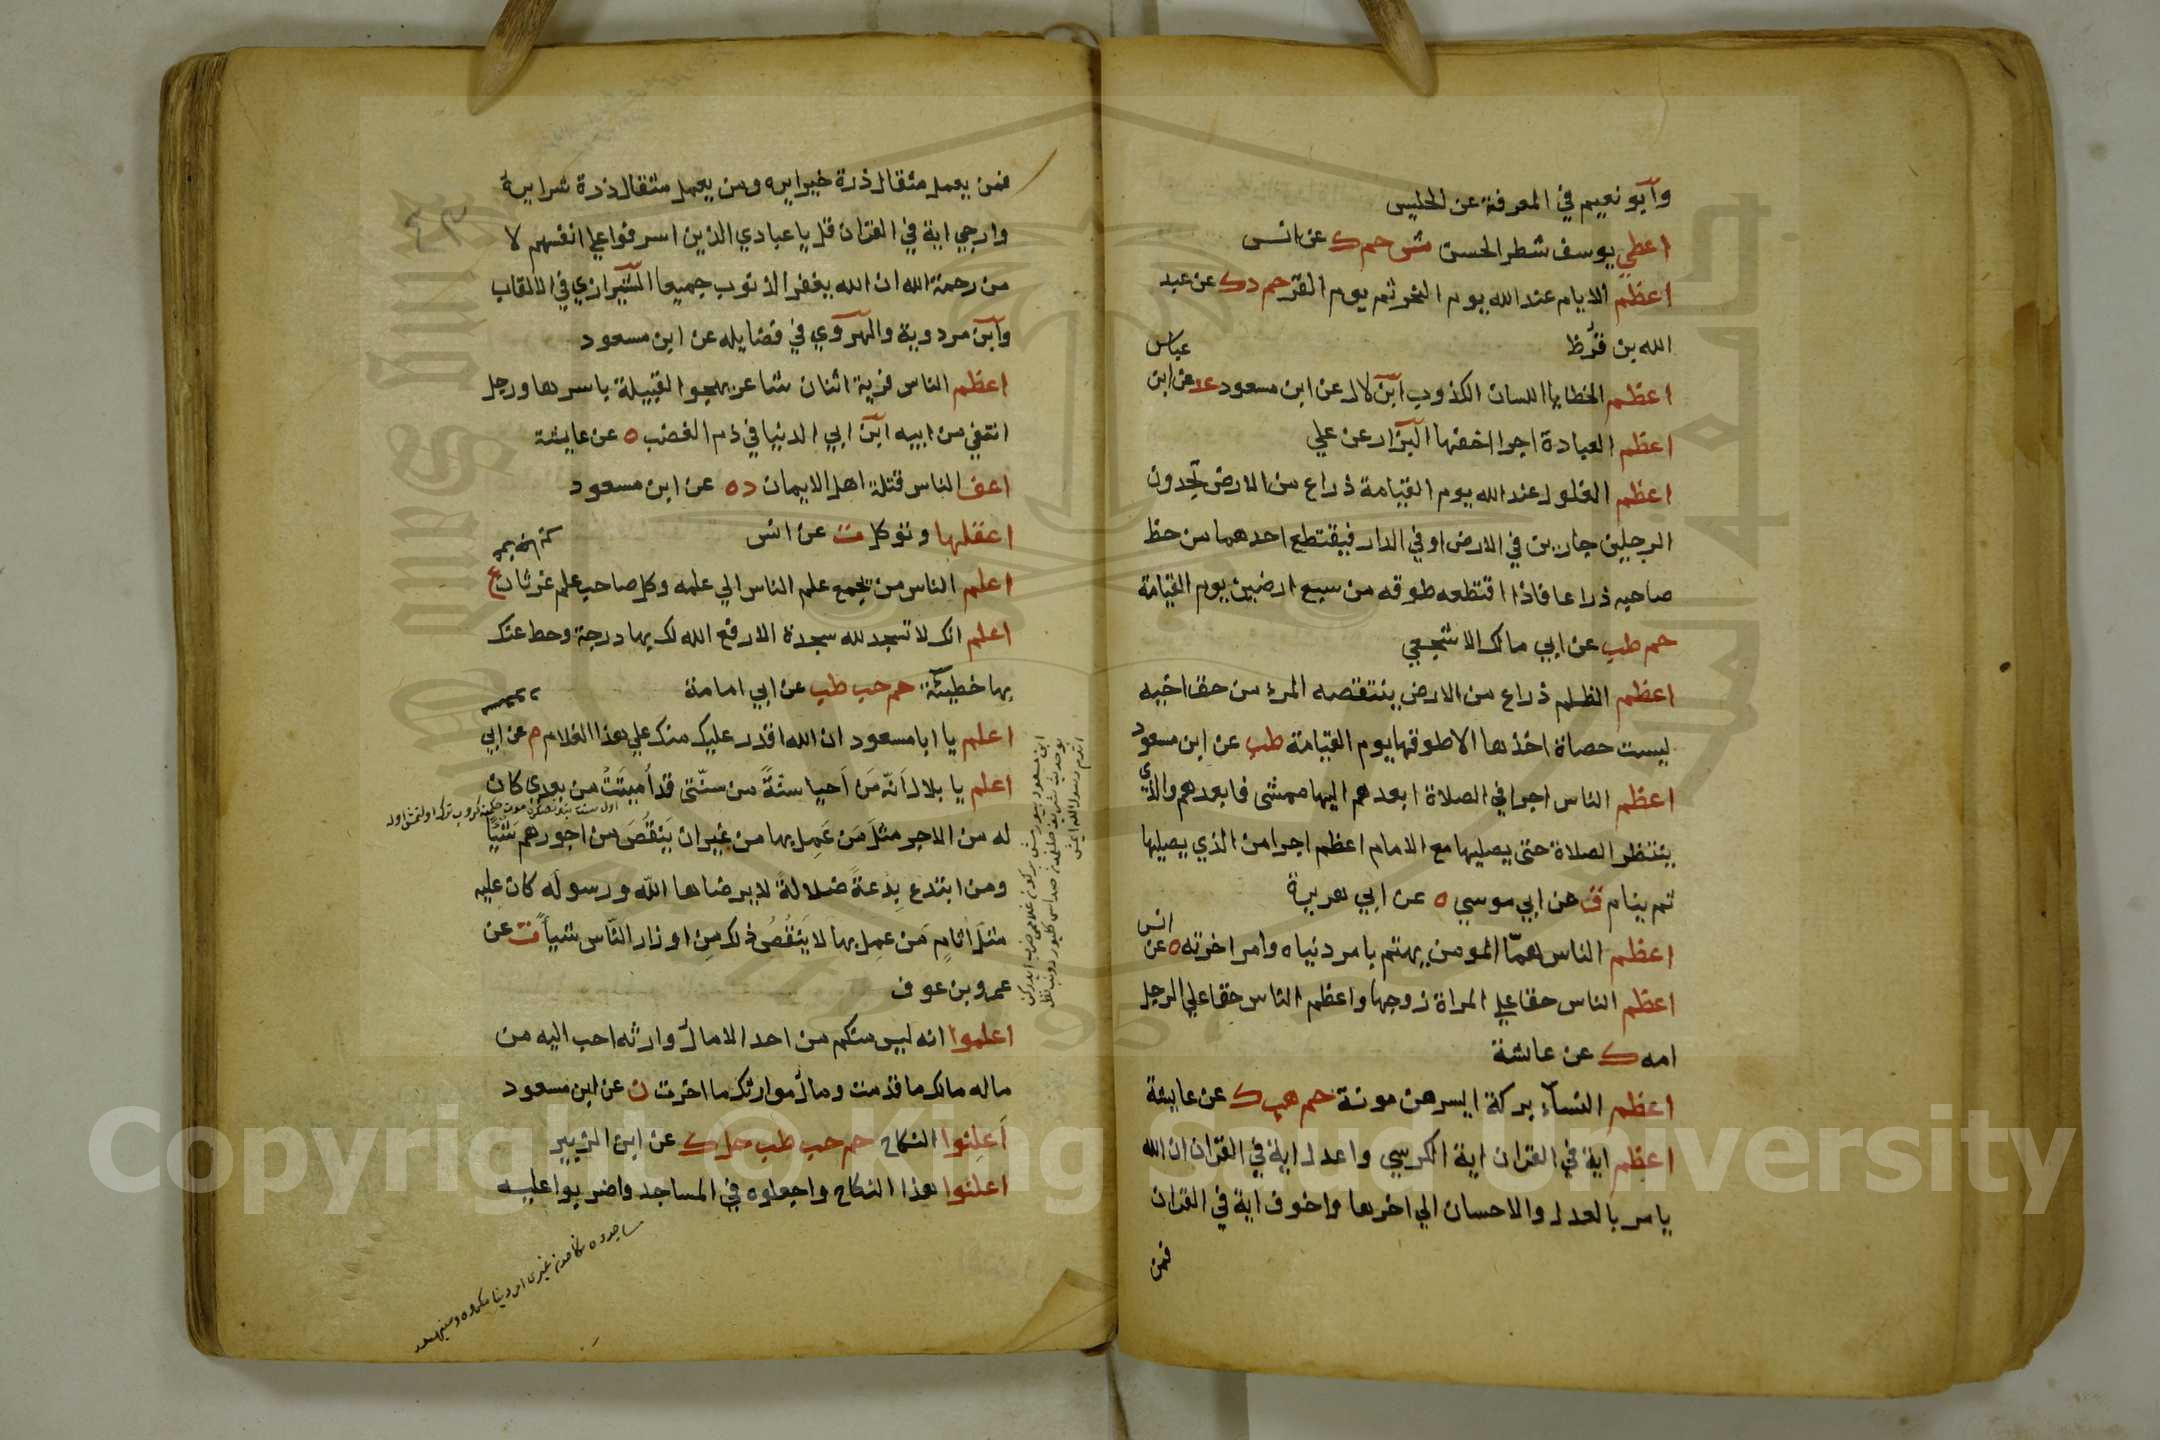 وأبو نعيم في المعرفة عن الحليس
اعطي يوسف شطر الحسن ش حم ك عن انس
اعظم الايام عند الله يوم النحر ثم يوم القر حم د ك عن عبد
الله بن قرط
اعظم الخطايا اللسان الكذوب ابن لال عن ابن مسعود عد عن ابن عباس
اعظم العيادة اجرا اخفها البزار عن علي
اعظم الغلول عند الله يوم القيامة ذراع من الارض تجدون
الرجلين جارين في الارض او في الدار فيقتطع احدهما من حظ
صاحبه ذراعا فاذا اقتطعه طوقه من سبع ارضين يوم القيامة
حم طب عن ابي مالك الاشجعي
اعظم الظلم ذراع من الارض ينتقصه المرء من حق اخيه
ليست حصاة اخذها الا طوقها يوم القيامة طب عن ابن مسعود
اعظم الناس اجرا في الصلاة ابعدهم اليها ممشى فابعدهم والذي
ينتظر الصلاة حتى يصليها مع الامام اعظم اجرا من الذي يصليها
ثم ينام ق عن ابي موسي ه عن ابي هريرة
اعظم الناس همّا المومن يهتم بامر دنياه وامر اخرته ه عن انس
اعظم الناس حقا علي المراة زوجها واعظم الناس حقا علي الرجل
امه ك عن عائشة
اعظم النسآء بركة ايسرهن مونة حم هب ك عن عايشة
اعظم اية في القران اية الكرسي واعدل اية في القران ان الله
يامر بالعدل والاحسان الي اخرها واخوف اية في القران
فمن
فمن يعمل مثقال ذرة خيرا يره ومن يعمل مثقال ذرة شرا يرة
وارجي اية في القران قل يا عبادي الذين اسرفوا علي انفسهم لا
من رحمة الله ان الله يغفر الذنوب جميعا الشيرازي في الالقاب
وابن مردوية والهروي في فضايله عن ابن مسعود
اعظم الناس فرية اثنان شاعر يهجو القبيلة باسرها ورجل
انتفي من ابيه ابن ابي الدنيا في ذم الغضب ه عن عايشة
اعف الناس قتلة اهل الايمان د ه عن ابن مسعود
اعقلها وتوكل ت عن انس
اعلم الناس من يجمع علم الناس الي علمه وكل صاحب علم غرثان ع
اعلم انك لا تسجد لله سجدة الا رفع الله لك بها درجة وحط عنك
بها خطيئة حم حب طب عن ابي امامة
اعلم يا ابا مسعود ان الله اقدر عليك منك علي هذا الغلام م عن ابي
اعلم يا بلال اَنّه مَن اَحيا سنّةً من سنّتى قد اُميتَتْ من بعدى كان
له من الاجر مثلَ مَن عَمِل بها من غير ان يَنقُصَ من اجورهم شَيْئًا
ومن ابتدع بِدعةً ضلالةً لا يرضاها اللّه ورسولَه كان عليه
مثلَ اثامِ مَن عمِل بها لا يَنْقُصُ ذلك مِن اوزار النّاس شيأً ت عن
عمرو بن عوف
اعلموا انه ليس منكم من احد الا مال وارثه احب اليه من
ماله مالك ما قدمت ومال موارثك ما اخرت ن عن ابن مسعود
اَعلِنوا النكاح حم حب طب حل ك عن ابن الزبير
اعلنوا هذا النكاح واجعلوه في المساجد واضربوا عليه
Copyright © King Saud University